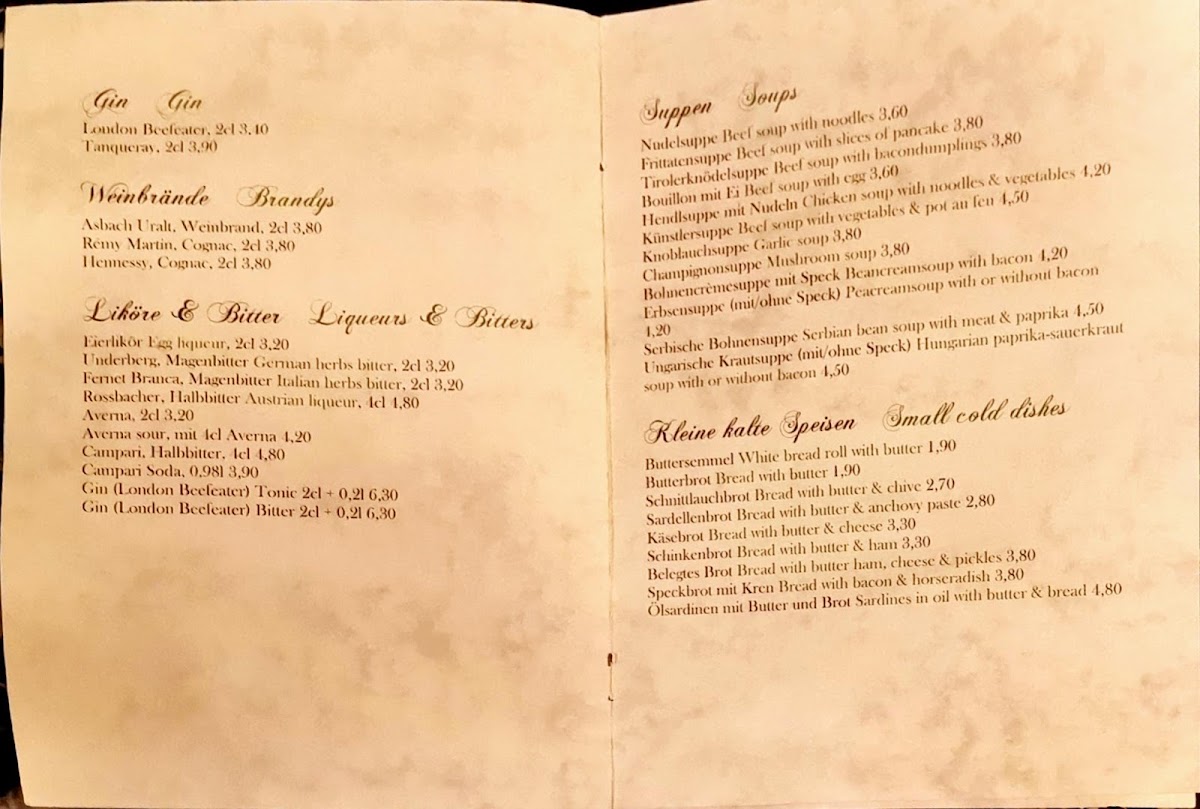 Gin Gin
London Beefeater, 2cl 3,40
Tanqueray, 2cl 3,90
Weinbrände Brandys
Asbach Uralt, Weinbrand, 2cl 3,80
Rémy Martin, Cognac, 2cl 3,80
Hennessy, Cognac, 2cl 3,80
Liköre & Bitter Liqueurs & Bitters
Eierlikör Egg liqueur, 2cl 3,20
Underberg, Magenbitter German herbs bitter, 2cl 3,20
Fernet Branca, Magenbitter Italian herbs bitter, 2cl 3,20
Rossbacher, Halbbitter Austrian liqueur, 4cl 4,80
Averna, 2cl 3,20
Averna sour, mit 4cl Averna 4,20
Campari, Halbbitter, 4cl 4,80
Campari Soda, 0,98l 3,90
Gin (London Beefeater) Tonic 2cl + 0,2l 6,30
Gin (London Beefeater) Bitter 2cl + 0,2l 6,30
Suppen Soups
Nudelsuppe Beef soup with noodles 3,60
Frittatensuppe Beef soup with slices of pancake 3,80
Tirolerknödelsuppe Beef soup with bacondumplings 3,80
Bouillon mit Ei Beef soup with egg 3,60
Hendlsuppe mit Nudeln Chicken soup with noodles & vegetables 4,20
Künstlersuppe Beef soup with vegetables & pot au feu 4,50
Knoblauchsuppe Garlic soup 3,80
Champignonsuppe Mushroom soup 3,80
Bohnencrèmesuppe mit Speck Beancreamsoup with bacon 4,20
Erbsensuppe (mit/ohne Speck) Peacreamsoup with or without bacon
4,20
Serbische Bohnensuppe Serbian bean soup with meat & paprika 4,50
Ungarische Krautsuppe (mit/ohne Speck) Hungarian paprika-sauerkraut
soup with or without bacon 4,50
Kleine kalte Speisen Small cold dishes
Buttersemmel White bread roll with butter 1,90
Butterbrot Bread with butter 1,90
Schnittlauchbrot Bread with butter & chive 2,70
Sardellenbrot Bread with butter & anchovy paste 2,80
Käsebrot Bread with butter & cheese 3,30
Schinkenbrot Bread with butter & ham 3,30
Belegtes Brot Bread with butter ham, cheese & pickles 3,80
Speckbrot mit Kren Bread with bacon & horseradish 3,80
Ölsardinen mit Butter und Brot Sardines in oil with butter & bread 4,80